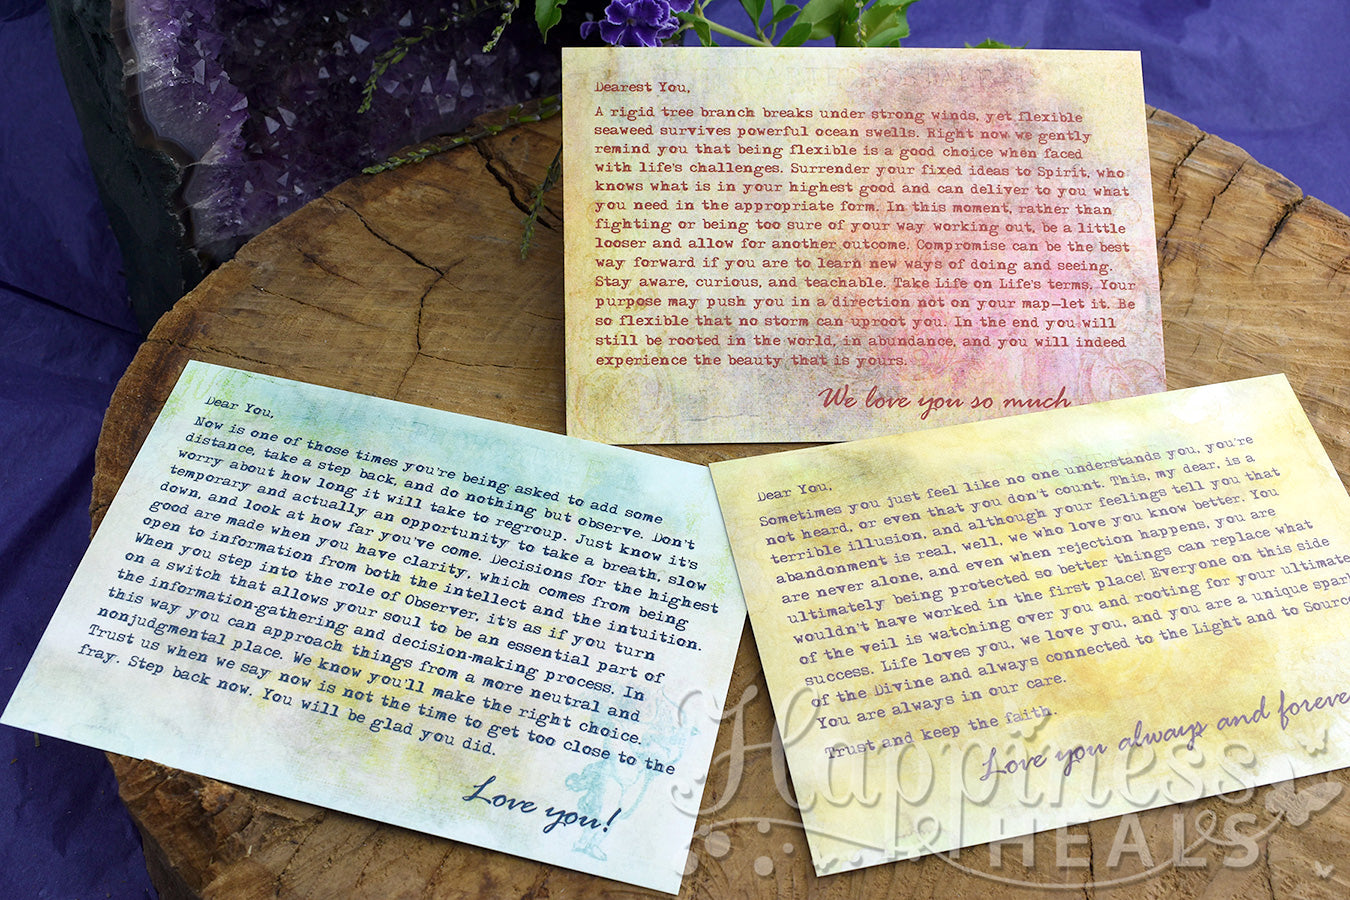 Dearest You,
A rigid tree branch breaks under strong winds, yet flexible
seaweed survives powerful ocean swells. Right now we gently
remind you that being flexible is a good choice when faced
with life's challenges. Surrender your fixed ideas to Spirit, who
knows what is in your highest good and can deliver to you what
you need in the appropriate form. In this moment, rather than
fighting or being too sure of your way working out, be a little
looser and allow for another outcome. Compromise can be the best
way forward if you are to learn new ways of doing and seeing.
Stay aware, curious, and teachable. Take Life on Life's terms. Your
purpose may push you in a direction not on your map—let it. Be
so flexible that no storm can uproot you. In the end you will
still be rooted in the world, in abundance, and you will indeed
experience the beauty that is yours.
We love you so much
Dear You,
Now is one of those times you're being asked to add some
distance, take a step back, and do nothing but observe. Don't
worry about how long it will take to regroup. Just know it's
temporary and actually an opportunity to take a breath, slow
down, and look at how far you've come. Decisions for the highest
good are made when you have clarity, which comes from being
open to information from both the intellect and the intuition.
When you step into the role of Observer, it's as if you turn
on a switch that allows your soul to be an essential part of
the information-gathering and decision-making process. In
this way you can approach things from a more neutral and
nonjudgmental place. We know you'll make the right choice.
Trust us when we say now is not the time to get too close to the
fray. Step back now. You will be glad you did.
Love you!
Dear You,
Sometimes you just feel like no one understands you, you're
not heard, or even that you don't count. This, my dear, is a
terrible illusion, and although your feelings tell you that
abandonment is real, well, we who love you know better. You
are never alone, and even when rejection happens, you are
ultimately being protected so better things can replace what
wouldn't have worked in the first place! Everyone on this side
of the veil is watching over you and rooting for your ultimate
success. Life loves you, we love you, and you are a unique spark
of the Divine and always connected to the Light and to Source.
You are always in our care.
Trust and keep the faith.
Love you always and forever
Happiness
HEALS